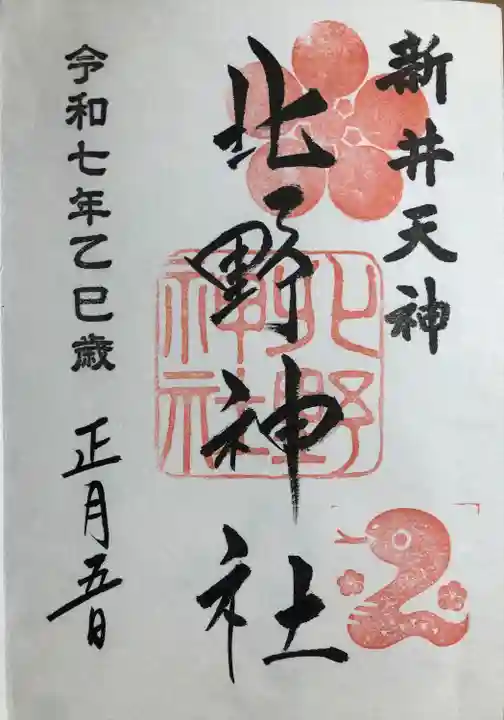 新井天神
北野神社
北野
神社
令和七年乙巳歳 正月五日